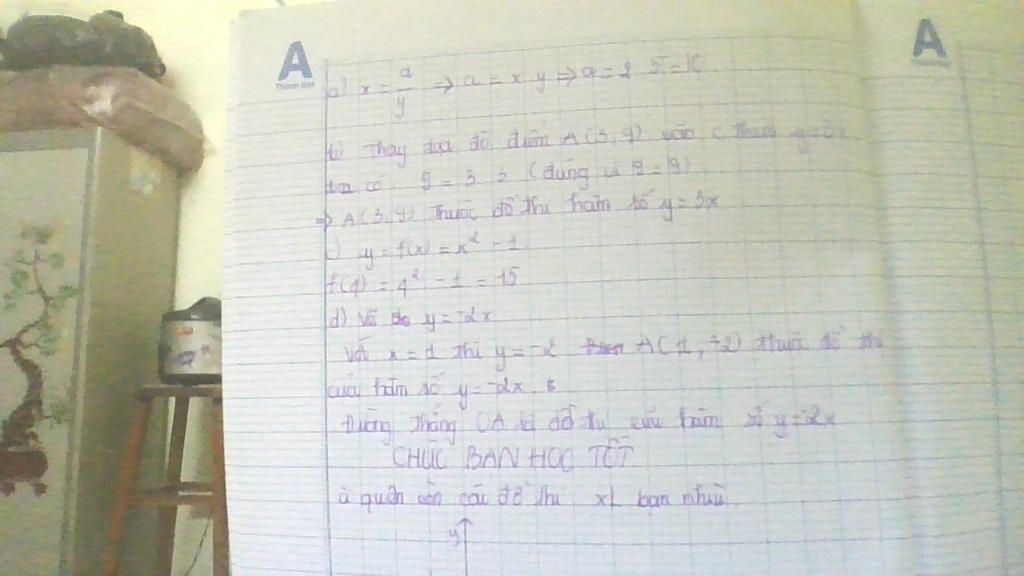 A A
a) x = a/y ⇒ a = x.y ⇒ a = 2.5 = 10
b) Thay tọa độ điểm A(3,9) vào c thức y=3x
ta có 9 = 3.3 (đúng vì 9 = 9)
⇒ A(3,9) thuộc đồ thị hàm số y = 3x
c) y = f(x) = x² - 1
f(4) = 4² - 1 = 15
d) Vẽ y = -2x
Với x = 1 thì y = -2 A(1, -2) thuộc đồ thị
của hàm số y = -2x
Đường thẳng OA là đồ thị của hàm số y = -2x
CHÚC BẠN HỌC TỐT
à quên còn cái đồ thị xl bạn nhiều
y